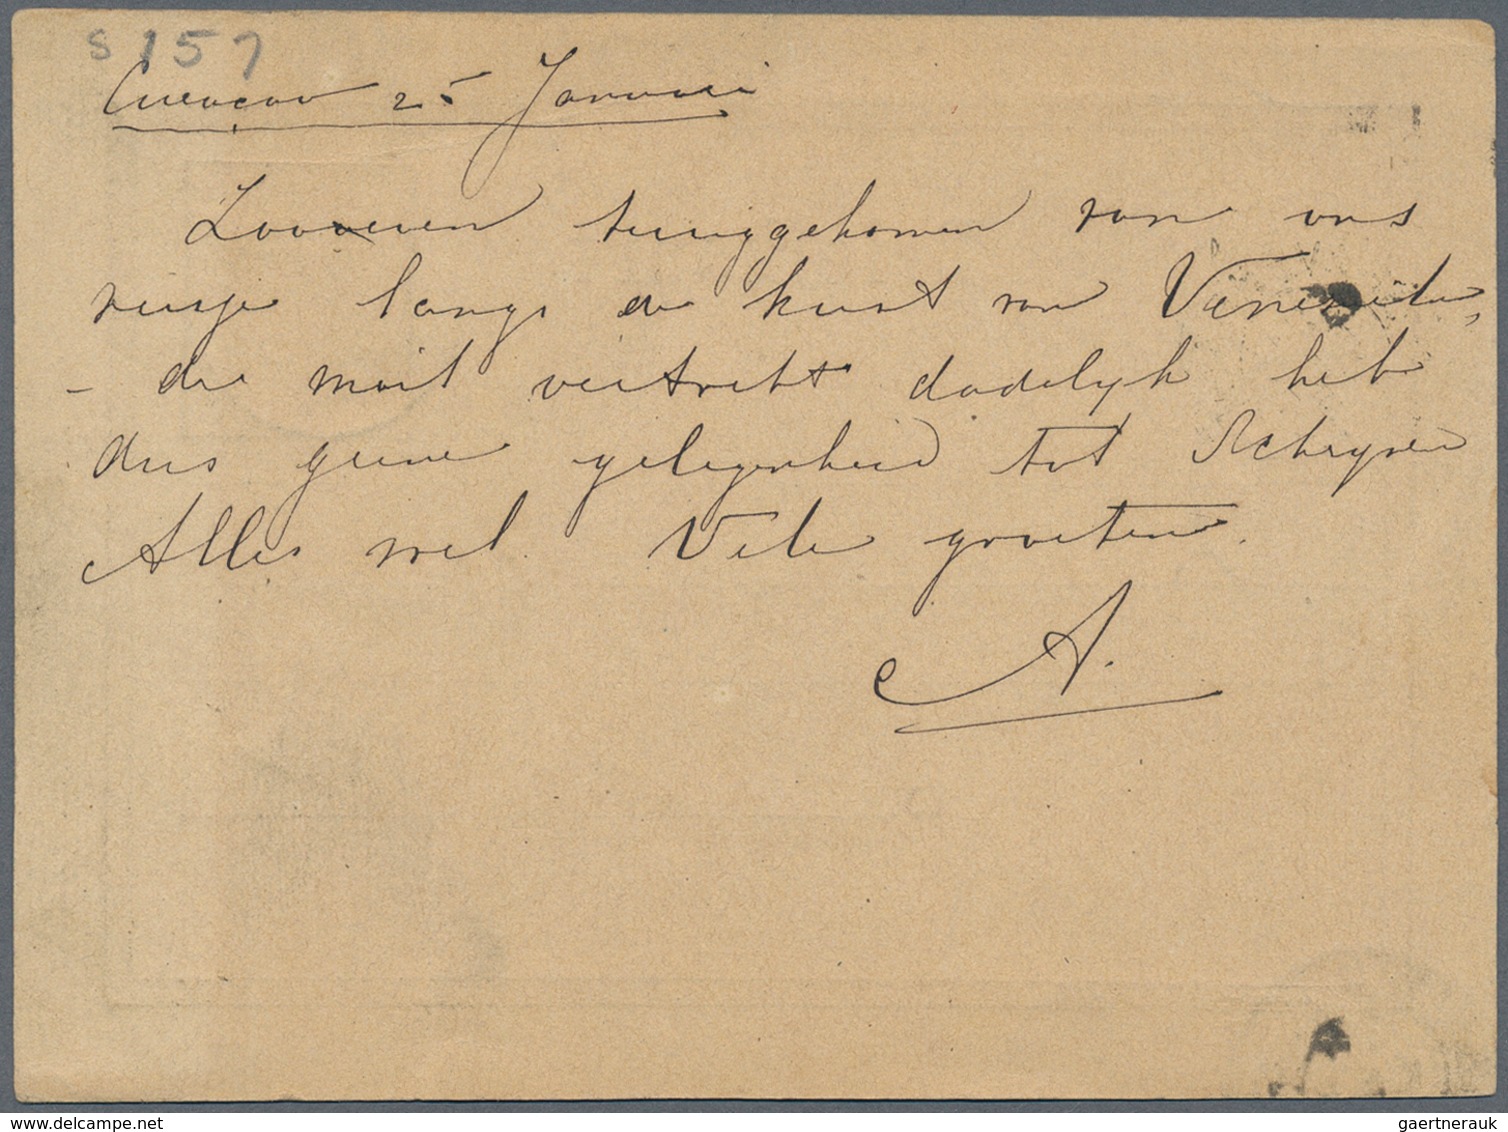 S 157
Curaçao 25 Januari
Zooeven teruggekomen van ons
reisje langs de kust van
- de mail vertrekt dadelijk heb
dus geene gelegenheid tot schrijven
Alles wel. Vele groeten.
A.
gaertnerauk